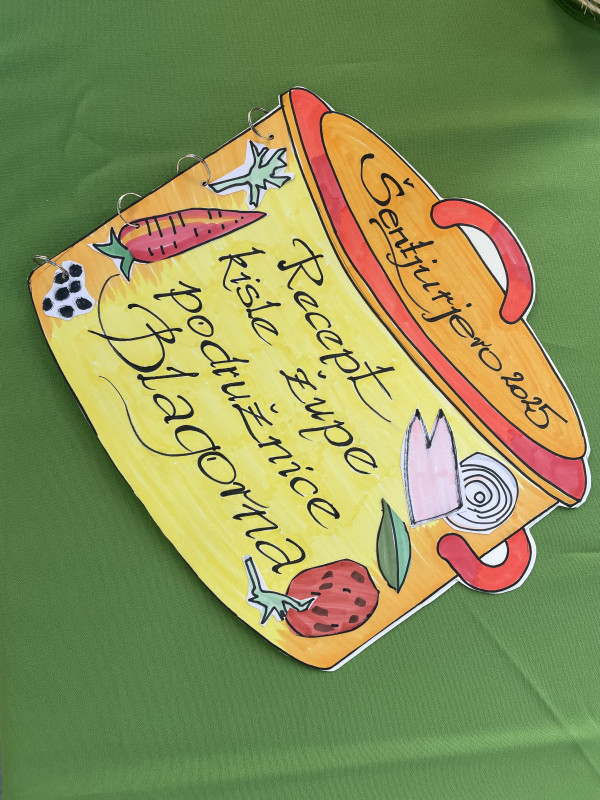 Šentjurjevo 2025
Recept
kisle župe
podružnice
Blagovna